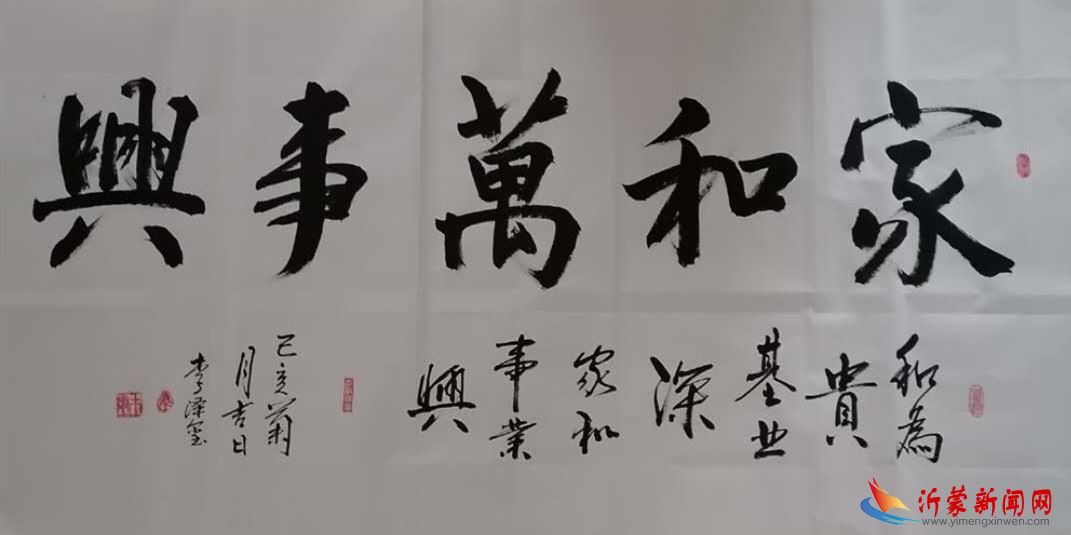 家和萬事興
和為
貴
基业
深
家和
事業
興
己亥菊
月吉日
李泽玺
沂蒙新闻网
www.yimengxinwen.com